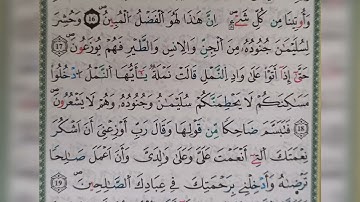 وَأُوتِينَا مِن كُلِّ شَيْءٍ ۖ إِنَّ هَٰذَا لَهُوَ الْفَضْلُ الْمُبِينُ ﴿16﴾ وَحُشِرَ
لِسُلَيْمَٰنَ جُنُودُهُ مِنَ الْجِنِّ وَالْإِنسِ وَالطَّيْرِ فَهُمْ يُوزَعُونَ ﴿17﴾
حَتَّىٰ إِذَا أَتَوْا عَلَىٰ وَادِ النَّمْلِ قَالَتْ نَمْلَةٌ يَٰأَيُّهَا النَّمْلُ ادْخُلُوا
مَسَٰكِنَكُمْ لَا يَحْطِمَنَّكُمْ سُلَيْمَٰنُ وَجُنُودُهُ وَهُمْ لَا يَشْعُرُونَ
﴿18﴾ فَتَبَسَّمَ ضَاحِكًا مِّن قَوْلِهَا وَقَالَ رَبِّ أَوْزِعْنِي أَنْ أَشْكُرَ
نِعْمَتَكَ الَّتِي أَنْعَمْتَ عَلَيَّ وَعَلَىٰ وَٰلِدَيَّ وَأَنْ أَعْمَلَ صَٰلِحًا
تَرْضَىٰهُ وَأَدْخِلْنِي بِرَحْمَتِكَ فِي عِبَادِكَ الصَّٰلِحِينَ ﴿19﴾